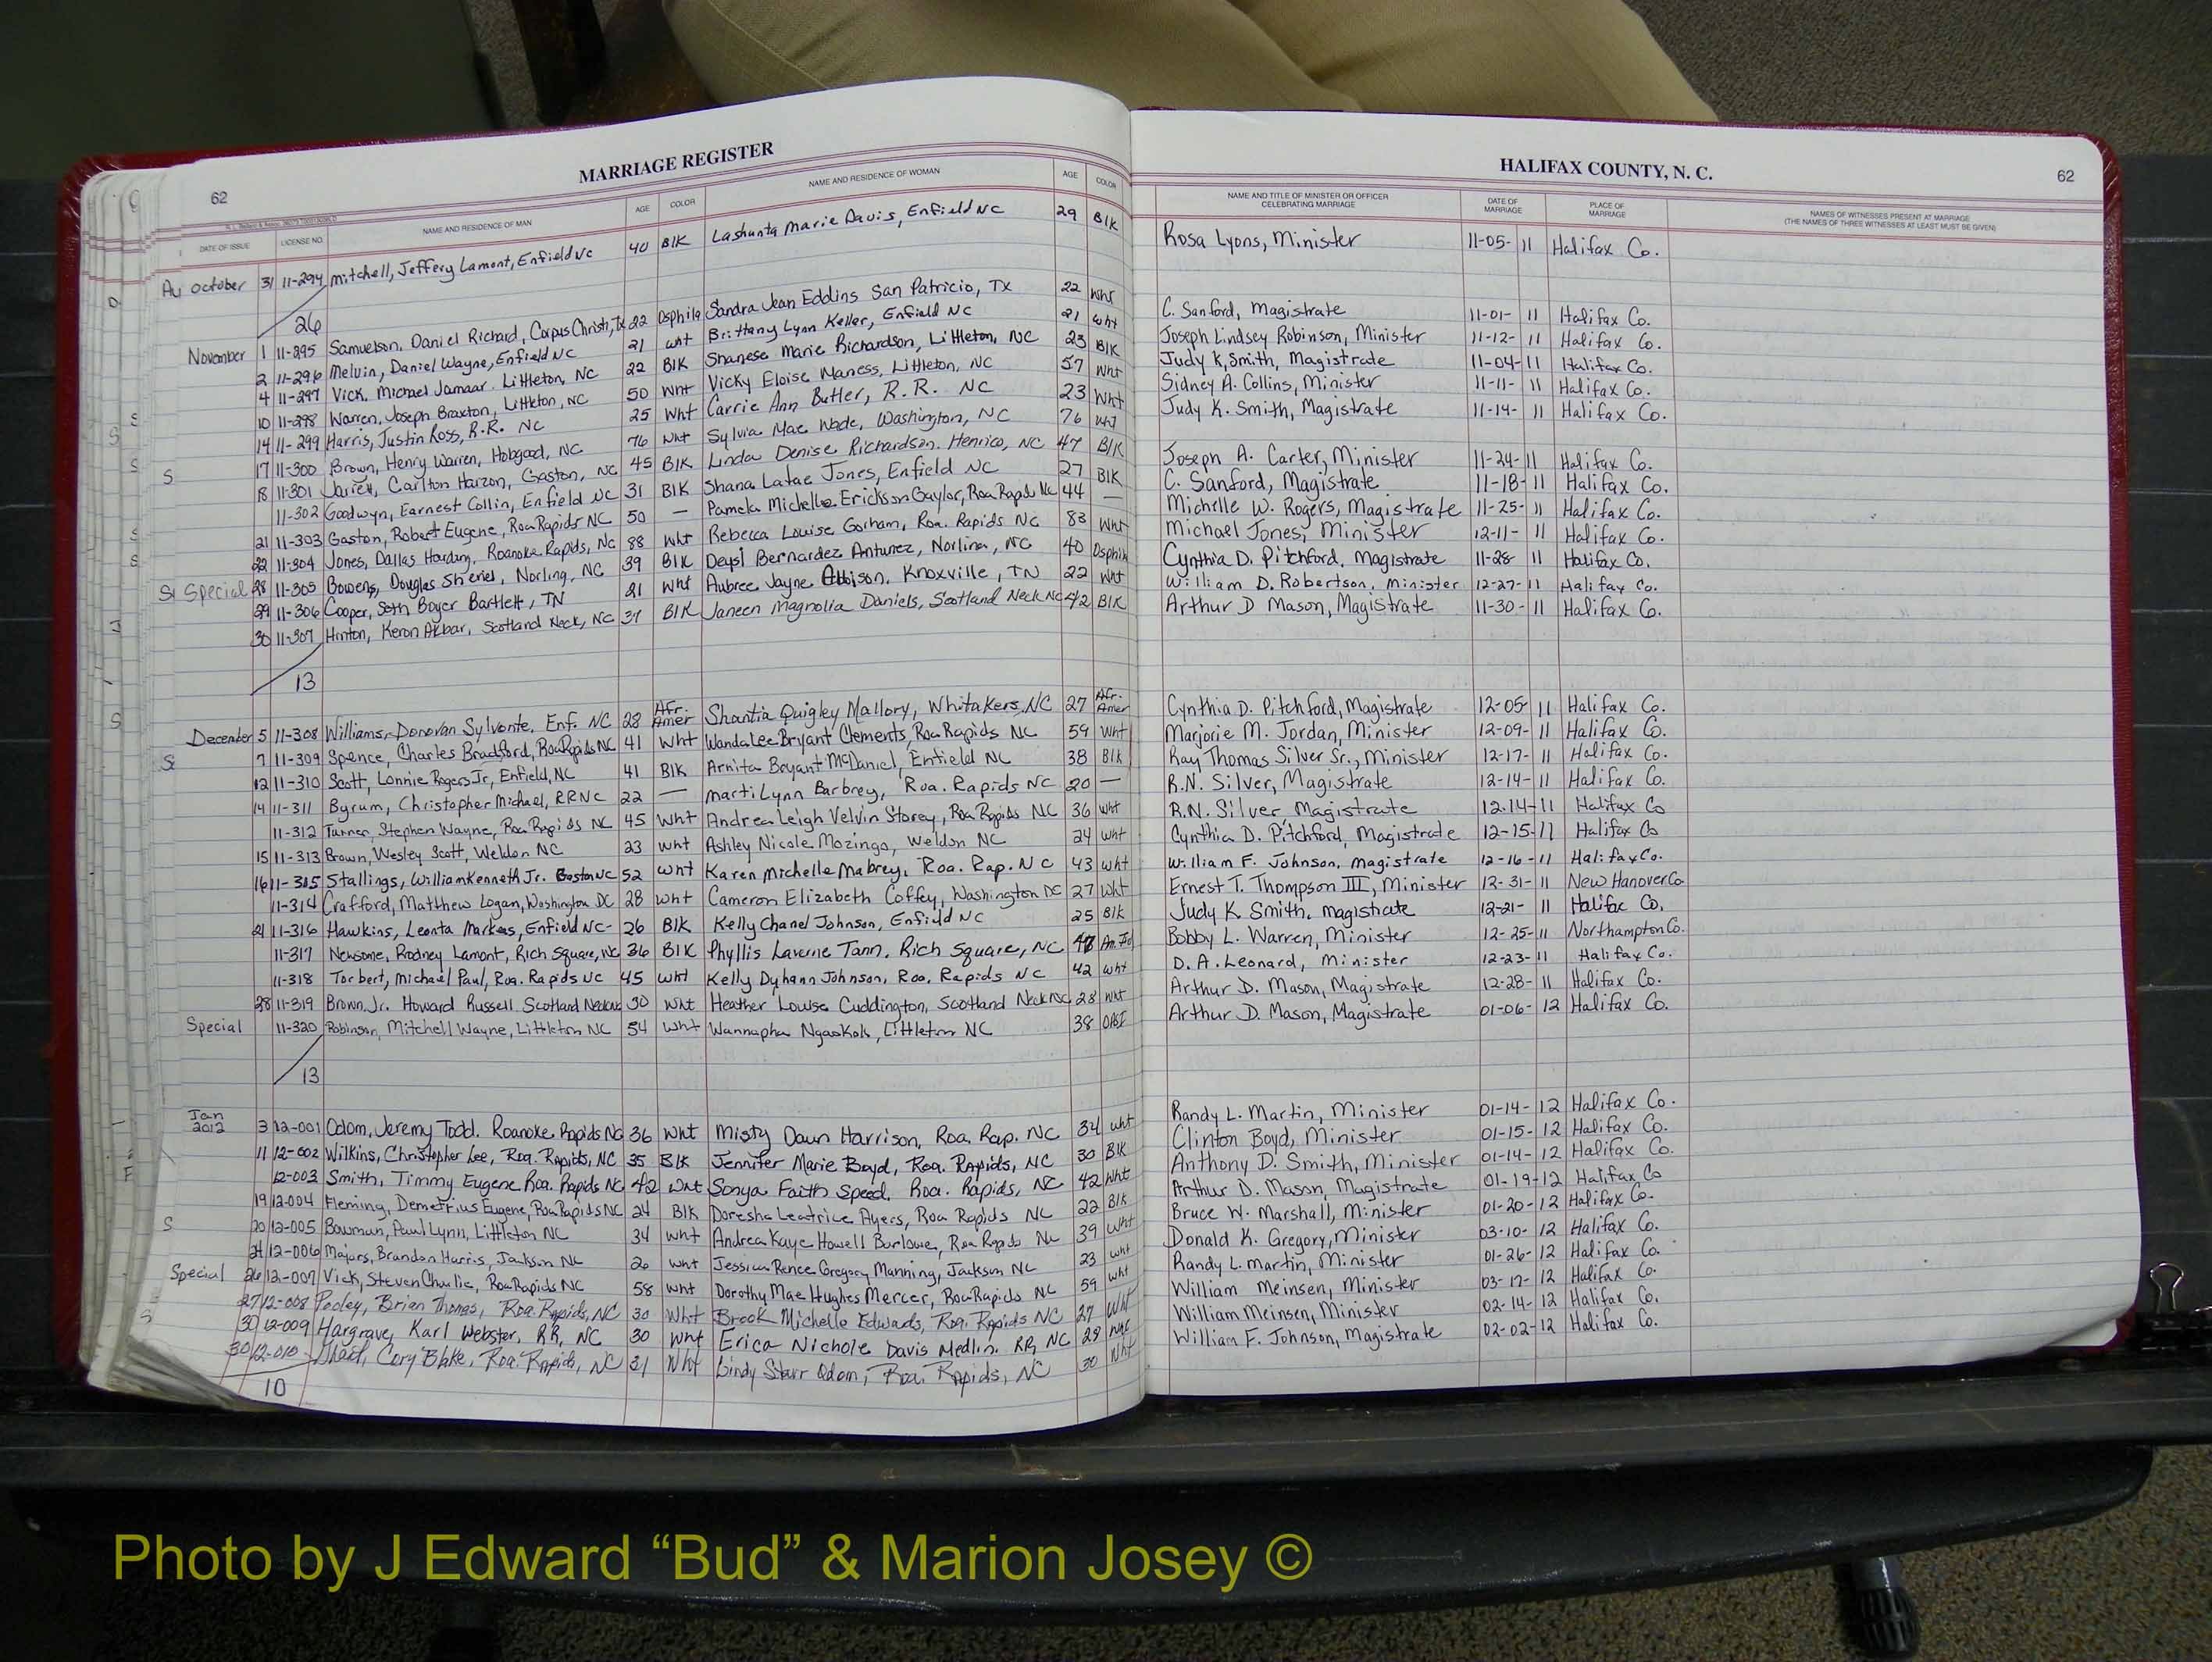 62 MARRIAGE REGISTER
HALIFAX COUNTY, N. C. 62
DATE OF ISSUE LICENSE NO. NAME AND RESIDENCE OF MAN AGE COLOR NAME AND RESIDENCE OF WOMAN AGE COLOR
NAME AND TITLE OF MINISTER OR OFFICER CELEBRATING MARRIAGE DATE OF MARRIAGE PLACE OF MARRIAGE NAMES OF WITNESSES PRESENT AT MARRIAGE (THE NAMES OF THREE WITNESSES AT LEAST MUST BE GIVEN)
October 31 11-294 Mitchell, Jeffery Lamont, Enfield NC 40 Blk Lashunta Marie Davis, Enfield NC 29 Blk Rosa Lyons, Minister 11-05-11 Halifax Co.
26
November 1 11-295 Samuelson, Daniel Richard, Corpus Christi, Tx 22 Osphila Sandra Jean Eddins San Patricio, TX 22 Wht C. Sanford, Magistrate 11-01-11 Halifax Co.
2 11-296 Melvin, Daniel Wayne, Enfield NC 21 Wht Brittany Lynn Keller, Enfield NC 21 Wht Joseph Lindsey Robinson, Minister 11-12-11 Halifax Co.
4 11-297 Vick, Michael Jamaar Littleton, NC 22 Blk Shanese Marie Richardson, Littleton, NC 23 Blk Judy K. Smith, Magistrate 11-04-11 Halifax Co.
10 11-298 Warren, Joseph Braxton, Littleton, NC 50 Wht Vicky Eloise Maness, Littleton, NC 57 Wht Sidney A. Collins, Minister 11-11-11 Halifax Co.
14 11-299 Harris, Justin Ross, R.R. NC 25 Wht Carrie Ann Butler, R.R. NC 23 Wht Judy K. Smith, Magistrate 11-14-11 Halifax Co.
S 17 11-300 Brown, Henry Warren, Hobgood, NC 76 Wht Sylvia Mae Wade, Washington, NC 76 Wht
18 11-301 Carlton Gaston, NC 45 Blk Linda Denise Richardson, Henrico, NC 47 Blk Joseph A. Carter, Minister 11-24-11 Halifax Co.
11-302 Goodwyn, Earnest Collin, Enfield NC 31 Blk Shana Latae Jones, Enfield NC 27 Blk C. Sanford, Magistrate 11-18-11 Halifax Co.
21 11-303 Gaston, Robert Eugene, Roa Rapids NC 50 — Pamela Michelle Erickson Gaylor, Roa Rapids NC 44 — Michelle W. Rogers, Magistrate 11-25-11 Halifax Co.
22 11-304 Jones, Dallas Harding, Roanoke Rapids, NC 88 Wht Rebecca Louise Gorham, Roa. Rapids NC 83 Wht Michael Jones, Minister 12-11-11 Halifax Co.
Special 28 11-305 Bowens, Douglas Norlina, NC 39 Blk Deysi Bernardez Antunez, Norlina, NC 40 Osphila Cynthia D. Pitchford, Magistrate 11-28-11 Halifax Co.
29 11-306 Cooper, Seth Boyer Bartlett, TN 21 Wht Aubree Jayne Knoxville, TN 22 Wht William D. Robertson, Minister 12-27-11 Halifax Co.
30 11-307 Hinton, Keron Akbar, Scotland Neck, NC 37 Blk Janeen Magnolia Daniels, Scotland Neck NC 42 Blk Arthur D Mason, Magistrate 11-30-11 Halifax Co.
13
December 5 11-308 Williams, Donovan Sylvonte, Enf. NC 28 Afr. Amer Shantia Quigley Mallory, Whitakers, NC 27 Afr. Amer Cynthia D. Pitchford, Magistrate 12-05-11 Halifax Co.
7 11-309 Spence, Charles Bradford, Roa Rapids NC 41 Wht Wanda Lee Bryant Clements, Roa Rapids NC 59 Wht Marjorie M. Jordan, Minister 12-09-11 Halifax Co.
12 11-310 Scott, Lonnie Rogers Jr, Enfield, NC 41 Blk Arnita Bryant McDaniel, Enfield NC 38 Blk Ray Thomas Silver Sr., Minister 12-17-11 Halifax Co.
14 11-311 Byrum, Christopher Michael, RR NC 22 — Marti Lynn Barbrey, Roa. Rapids NC 20 — R.N. Silver, Magistrate 12-14-11 Halifax Co.
11-312 Turner, Stephen Wayne, Roa Rapids NC 45 Wht Andrea Leigh Velvin Storey, Roa Rapids NC 36 Wht R.N. Silver, Magistrate 12-14-11 Halifax Co
15 11-313 Brown, Wesley Scott, Weldon NC 23 Wht Ashley Nicole Mozingo, Weldon NC 24 Wht Cynthia D. Pitchford, Magistrate 12-15-11 Halifax Co
16 11-315 Stallings, William Kenneth Jr. Gaston NC 52 Wht Karen Michelle Mabrey, Roa. Rap. NC 43 Wht William F. Johnson, Magistrate 12-16-11 Halifax Co.
11-314 Crafford, Matthew Logan, Washington DC 28 Wht Cameron Elizabeth Coffey, Washington DC 27 Wht Ernest T. Thompson III, Minister 12-31-11 New Hanover Co
21 11-316 Hawkins, Leonta Markeas, Enfield NC 26 Blk Kelly Chanel Johnson, Enfield NC 25 Blk Judy K Smith, Magistrate 12-21-11 Halifax Co.
11-317 Newsome, Rodney Lamont, Rich Square, NC 36 Blk Phyllis Laverne Tann, Rich Square, NC Am. Ind Bobby L. Warren, Minister 12-25-11 Northampton Co.
11-318 Torbert, Michael Paul, Roa. Rapids NC 45 Wht Kelly Dyhann Johnson, Roa. Rapids NC 42 Wht D. A. Leonard, Minister 12-23-11 Halifax Co.
28 11-319 Brown, Jr. Howard Russell Scotland Neck NC 30 Wht Heather Louise Cuddington, Scotland Neck NC 28 Wht Arthur D. Mason, Magistrate 12-28-11 Halifax Co.
Special 11-320 Robinson, Mitchell Wayne, Littleton NC 54 Wht Wannapha Ngaskok, Littleton NC 38 Arthur D. Mason, Magistrate 01-06-12 Halifax Co.
13
Jan 2012 3 12-001 Odom, Jeremy Todd. Roanoke Rapids NC 36 Wht Misty Dawn Harrison, Roa. Rap. NC 34 Wht Randy L. Martin, Minister 01-14-12 Halifax Co.
11 12-002 Wilkins, Christopher Lee, Roa. Rapids, NC 35 Blk Jennifer Marie Boyd, Roa. Rapids, NC 30 Blk Clinton Boyd, Minister 01-15-12 Halifax Co.
12-003 Smith, Timmy Eugene Roa. Rapids NC 42 Wht Sonya Faith Speed, Roa. Rapids, NC 42 Wht Anthony D. Smith, Minister 01-14-12 Halifax Co.
19 12-004 Fleming, Demetrius Eugene, Roa Rapids NC 24 Blk Doresha Leatrice Ayers, Roa Rapids NC 22 Blk Arthur D. Mason, Magistrate 01-19-12 Halifax Co
S 20 12-005 Bowman, Paul Lynn, Littleton NC 34 Wht Andrea Kaye Howell Burlowe, Roa Rapids NC 39 Wht Bruce W. Marshall, Minister 01-20-12 Halifax Co.
12-006 Majors, Brandon Harris, Jackson NC 26 Wht Jessica Renee Gregory Manning, Jackson NC 23 Wht Donald K. Gregory, Minister 03-10-12 Halifax Co.
Special 26 12-007 Vick, Steven Charlie, Roa Rapids NC 58 Wht Dorothy Mae Hughes Mercer, Roa Rapids NC 59 Wht Randy L. Martin, Minister 01-26-12 Halifax Co.
27 12-008 Pooley, Brian Thomas, Roa. Rapids, NC 30 Wht Brook Michelle Edwards, Roa. Rapids NC 27 Wht William Meinsen, Minister 03-17-12 Halifax Co.
30 12-009 Hargrave, Karl Webster, RR, NC 30 Wht Erica Nichole Davis Medlin, RR, NC 28 William Meinsen, Minister 02-14-12 Halifax Co.
30 12-010 Cory Blake, Roa. Rapids, NC 31 Wht Cindy Starr Odom, Roa. Rapids, NC 30 Wht William F. Johnson, Magistrate 02-02-12 Halifax Co.
10
Photo by J Edward “Bud” & Marion Josey ©